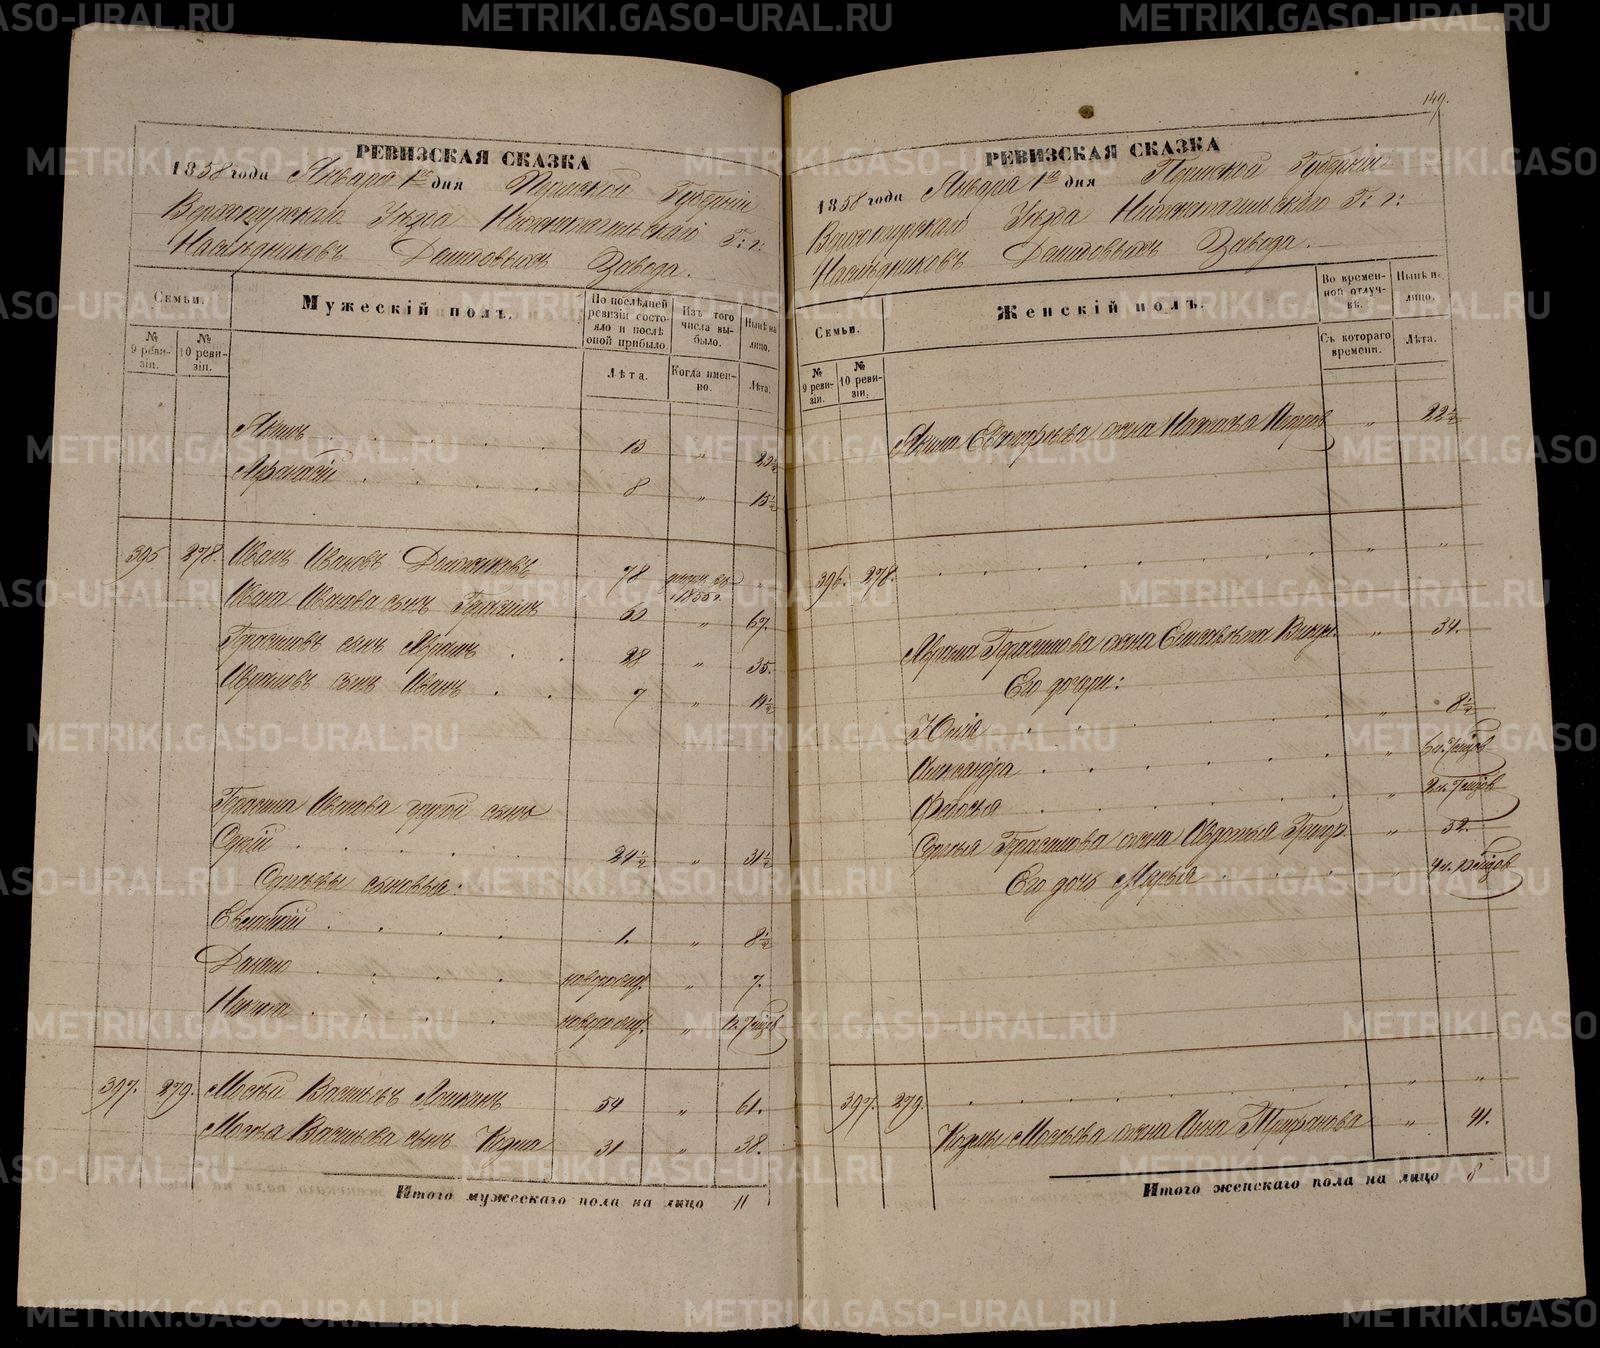 РЕВИЗСКАЯ СКАЗКА
1858 года Января 1го дня Пермской Губернiи
Верхотурскаго Уезда Нижнетагильскаго Г: г:
Наследниковъ Демидовыхъ Завода.
Семьи.
№ 9 ревизiи.
№ 10 ревизiи.
Мужескiй полъ.
По последней
ревизiи состо-
яло и после
оной прибыло.
Лѣта.
Изъ того
числа вы-
было.
Когда имен-
но.
Ныне на
лицо.
Лѣта.
Якимъ . . . . 13 " 20½
Афанасiй . . . . 8 " 15½
395 278. Иванъ Ивановъ 78 1855.
Ивана Иванова сынъ Герасимъ 60 " 67.
Герасимовъ сынъ Абрамъ . . 28 " 35.
Абрамовъ сынъ Иванъ . . 7 " 14½
Герасима Иванова другой сынъ
Сергiй . . . . 24½ " 31½
Сергеевы сыновья:
Евлампiй . . . . 1. " 8½
Данило . . . . новорожд. " 7.
Никита . . . . новорожд. "
397. 279. Мосей Васильевъ 54 " 61.
Мосея Васильева сынъ Козма 31 " 38.
Итого мужескаго пола на лицо 11
149.
РЕВИЗСКАЯ СКАЗКА
1858 года Января 1го дня Пермской Губернiи
Верхотурскаго Уезда Нижнетагильскаго Г: г:
Наследниковъ Демидовыхъ Завода.
Семьи.
№ 9 ревизiи.
№ 10 ревизiи.
Женскiй полъ.
Во времен-
ной отлуч-
кѣ.
Съ котораго
времени.
Ныне на
лицо.
Лѣта.
Акима жена " 22½
396. 278. . . . . " "
Абрама Герасимова жена Елизавета " 34.
Его дочери:
Юлiя . . . . " 8½
Александра . . . . "
Федосья . . . . "
Сергея Герасимова жена Авдотья Григор. " 32.
Его дочь Марья . . . . "
397. 279. . . . . " "
Козмы Мосеева жена Анна Трифанова " 41.
Итого женскаго пола на лицо 8
METRIKI.GASO-URAL.RU